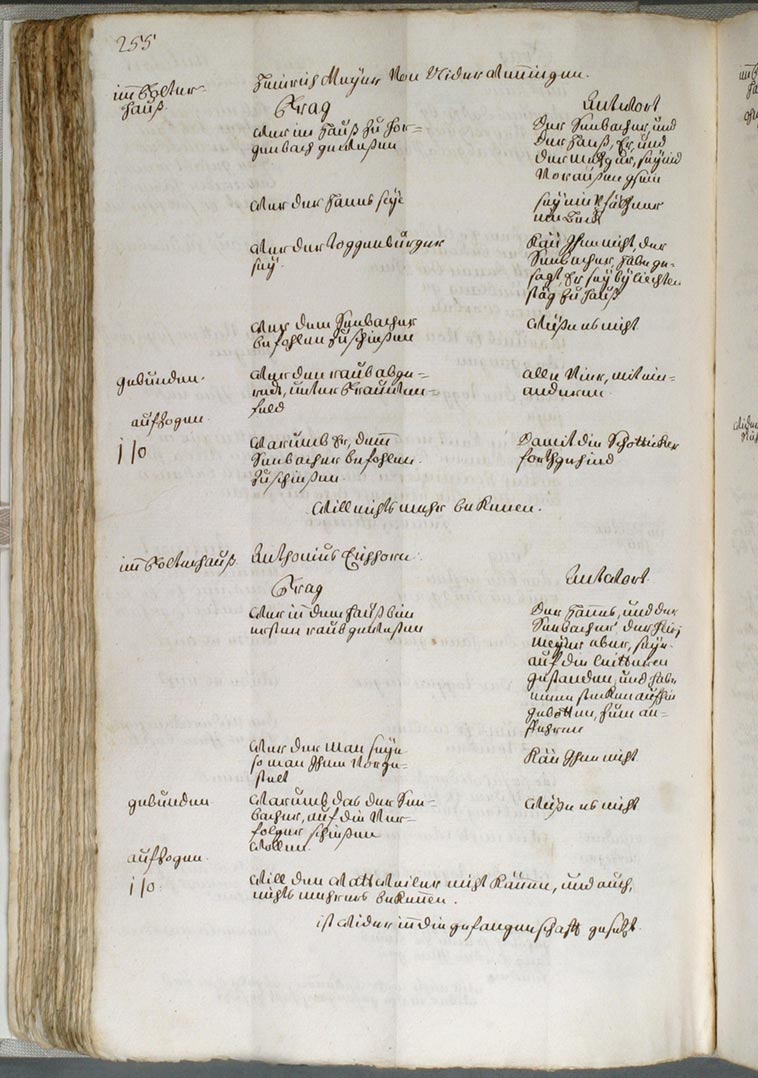 255
im̅ Folter-
hauß.
Heinrich Meÿer von Nider
Frag
Antwort
Wer im hauß zu Hor-
genbach geweßen
Der Sunbacher, und
der Hanß, Er, und
der Metzger, seyind
voraußen gsein
Wer der Hanns seÿe
seÿ ein
Wer der Toggenburger
seÿ.
Käñ Ihne nicht, der
Sunbacher, habe ge-
sagt, Er seÿ bÿ Liechten
stäg zu hauß
Wer dem Sunbacher
befohlen zu schießen
Wüße es nicht
gebunden.
Wer den raub abge-
redt, unter Frauwen-
feld
alle vier, mit ein-
anderen.
aufzogen.
i/o
Warumb Er, dem̅
Sunbacher befohlen
zu schießen.
Damit die
forthgehind
Will nichts mehr bekennen.
im̅ Folterhauß.
Anthonius Eichhorn.
Frag
Antwort.
Wer in̅ dem hauß beim
ersten raub geweßen
Der Hanns, und der
Sunbacher, der
Meÿer aber, seÿe
auf der leitteren
gestanden, und habe
einen stecken auffhin
gebotten, zum an-
Wer der Man seÿe
so man Ihme vorge-
stelt
Käñ Ihne nicht
gebunden
Warumb das der Sun-
bacher, auf die ver-
folger schießen
wollen.
Wüße es nicht
aufzogen.
i/o.
Will den Mattweiler nicht käñen, und auch,
nichts mehrers bekeñen.
ist wider in̅ die gefangenschafft gesetzt.